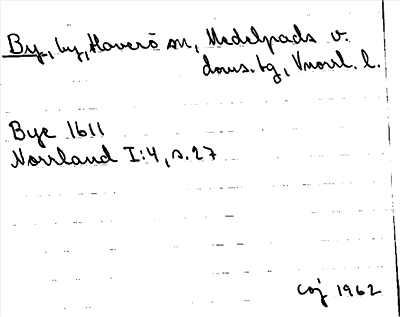 By, by, Haverö sn, Medelpads v.
doms.bg, Vnorrl. l.
Bye 1611
Norrland I:4, s.27
COJ 1962